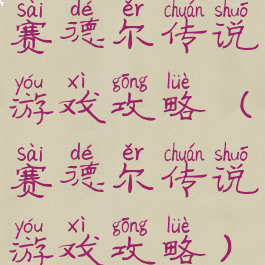 sài dé ěr chuán shuō
赛德尔传说
yóu xì gōng lüè
游戏攻略（
sài dé ěr chuán shuō
赛德尔传说
yóu xì gōng lüè
游戏攻略）